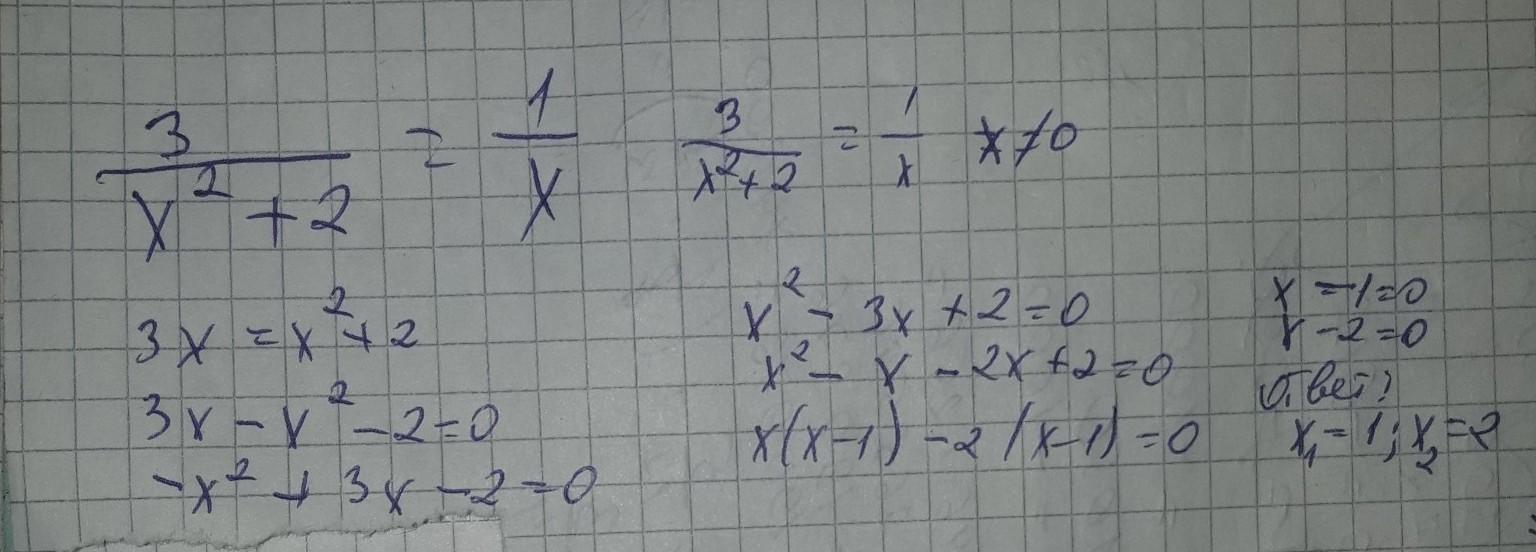 3/(x² + 2) = 1/x
3/(x² + 2) = 1/x x ≠ 0
3x = x² + 2
3x - x² - 2 = 0
-x² + 3x - 2 = 0
x² - 3x + 2 = 0
x² - x - 2x + 2 = 0
x(x-1) - 2(x-1) = 0
x =-1=0
x - 2 = 0
Ответ:
x₁ = 1; x₂ = 2